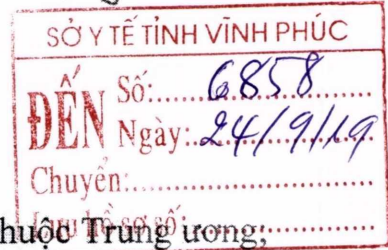 SỞ Y TẾ TỈNH VĨNH PHÚC
ĐẾN
Số: 6858
Ngày: 24/9/19
Chuyển:
Lưu hồ sơ số:
huộc Trung ương,